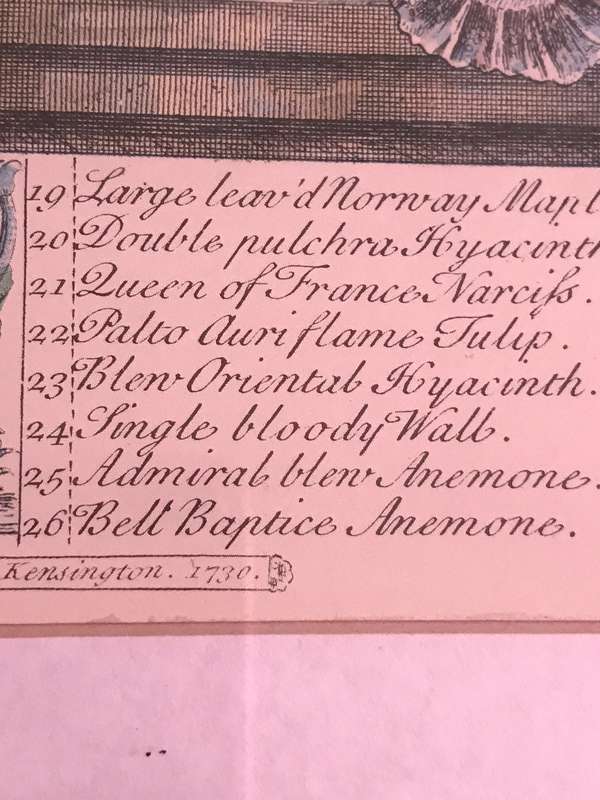 19 Large leav'd Norway Mapl
20 Double pulchra Hyacinth
21 Queen of France Narciſs.
22 Palto Auriflame Tulip.
23 Blew Oriental Hyacinth.
24 Single bloody Wall.
25 Admiral blew Anemone.
26 Bell Baptice Anemone.
Kensington. 1730.